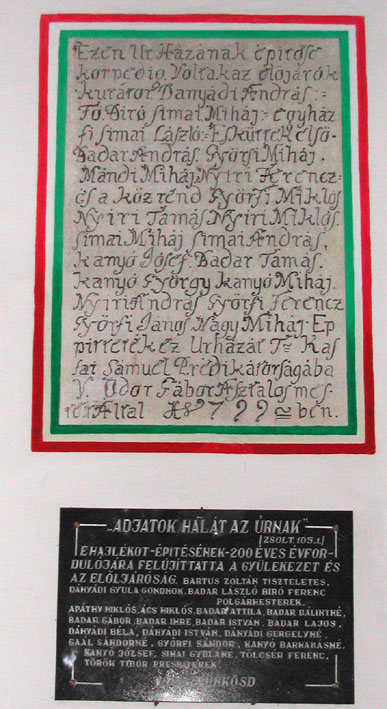 Ezen Ur Házának epitese
korpedig Voltak az előjárók
kurátor Danyádi András:=
Fő Biró Simai Miháj:= egyház
fi simai László:= Eskűttek első-
Badar András. Győrfi Miháj.
Mándi Miháj, Nyiri Ferencz=
és a köz rend Győrfi Miklós
Nyiri Tamás Nyiri Miklós.
simai Miháj simai András,
kanyó Jósef. Badar Tamás.
kanyó György kanyó Miháj.
Nyiri András Győrfi Ferencz
Győrfi János Nagy Miháj. Ep
pittetek ez Urházát T= Kas
sai Sámuel Prédikátorságába
V. Odor Fábor Asztalos mes-
ter Által 1799 ben.
„ADJATOK HÁLÁT AZ ÚRNAK"
[ZSOLT. 105.1]
E HAJLÉKOT-ÉPÍTÉSÉNEK-200 ÉVES ÉVFOR-
DULÓJÁRA FELÚJÍTTATTA A GYÜLEKEZET ÉS
AZ ELÖLJÁRÓSÁG. BARTUS ZOLTÁN TISZTELETES,
DÁNYÁDI GYULA GONDNOK, BADAR LÁSZLÓ BIRÓ FERENC
POLGÁRMESTEREK.
APÁTHY MIKLÓS, ÁCS MIKLÓS, BADAR ATTILA, BADAR BÁLINTNÉ,
BADAR GÁBOR, BADAR IMRE, BADAR ISTVÁN, BADAR LAJOS,
DÁNYÁDI BÉLA, DÁNYÁDI ISTVÁN, DÁNYÁDI GERGELYNÉ,
GAÁL SÁNDORNÉ, GYŐRFI SÁNDOR, KANYÓ BARNABÁSNÉ,
KANYÓ JÓZSEF, SIMAI GYULÁNÉ, TÖLCSÉR FERENC,
TÖRÖK TIBOR PRESBITEREK.
PÜNKÖSD